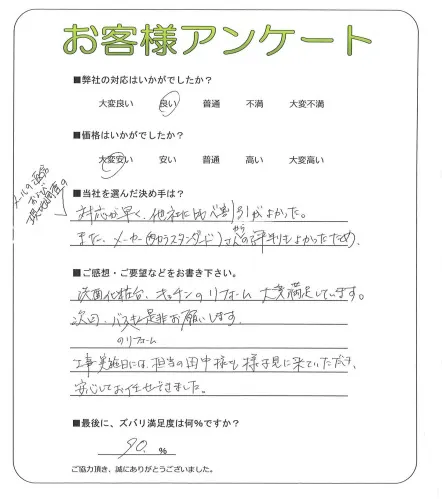 お客様アンケート
■弊社の対応はいかがでしたか？
大変良い 良い 普通 不満 大変不満
■価格はいかがでしたか？
大変安い 安い 普通 高い 大変高い
■当社を選んだ決め手は？
メールの返答
および
現地調査の
対応が早く、他社に比べ割引がよかった。
また、メーカー(タカラスタンダード)さんからの評判もよかったため。
■ご感想・ご要望などをお書き下さい。
洗面化粧台、キッチンのリフォーム 大変満足しています。
次回、バスも是非お願いします。
のリフォーム
工事実施日には、担当の田中様も様子見に来ていただき、
安心してお任せできました。
■最後に、ズバリ満足度は何％ですか？
90. %
ご協力頂き、誠にありがとうございました。